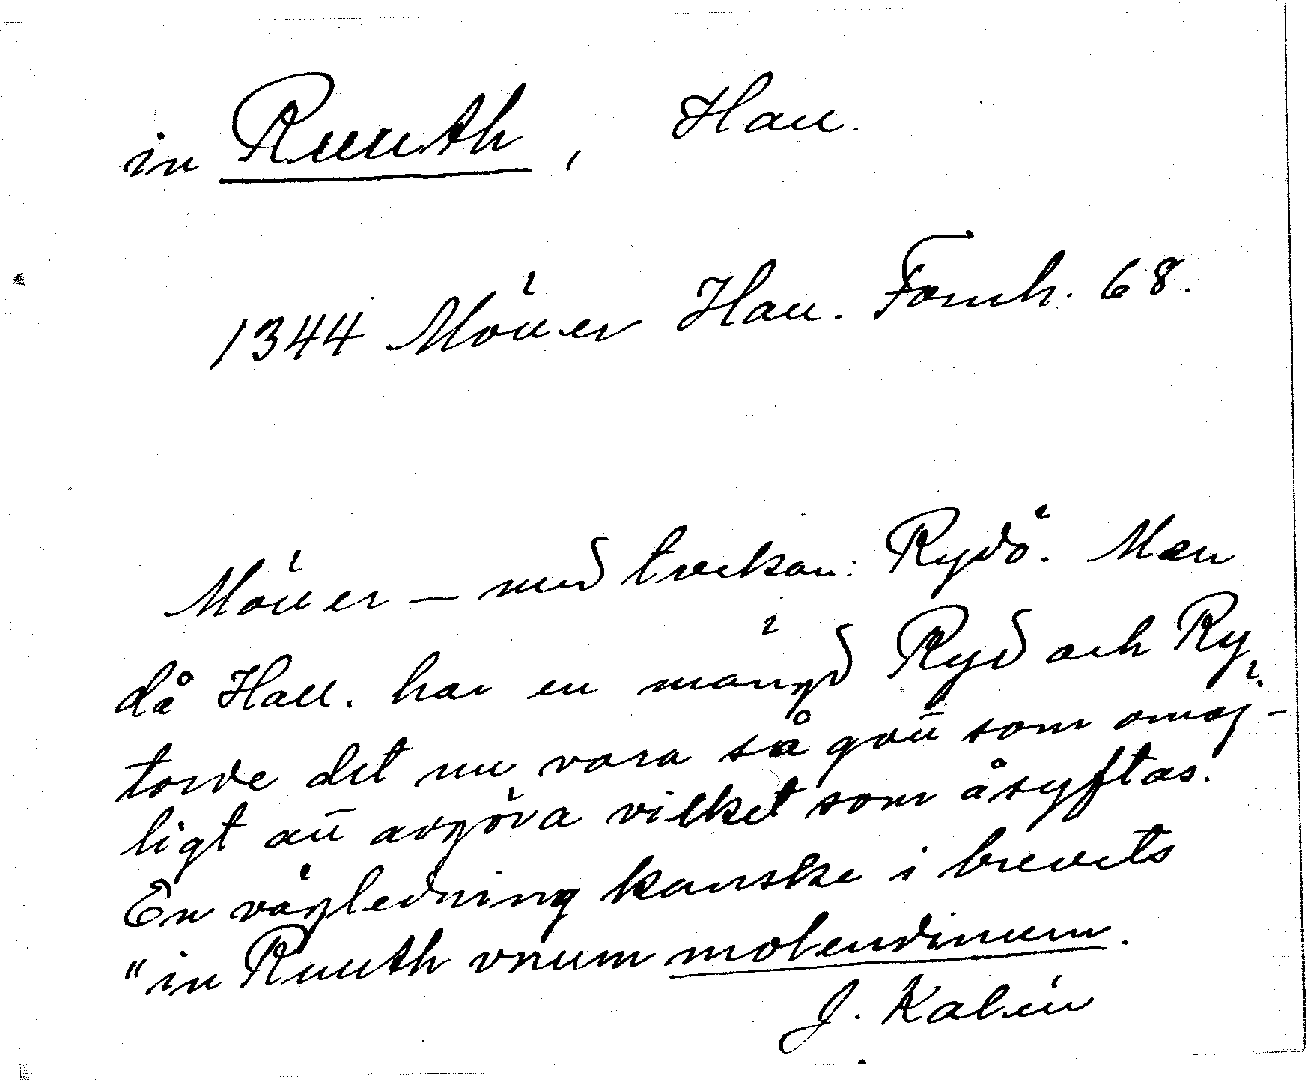 in Ruuth, Hall.
1344 Möller Hall. Fornh. 68.
Möller — med tvekan: Rydö. Men
då Hall. har en mängd Ryd och Ry,
torde det nu vara så gott som omöj-
ligt att avgöra vilket som åsyftas.
En vägledning kanske i brevets
"in Ruuth vnum molendinum.
J. Kalén